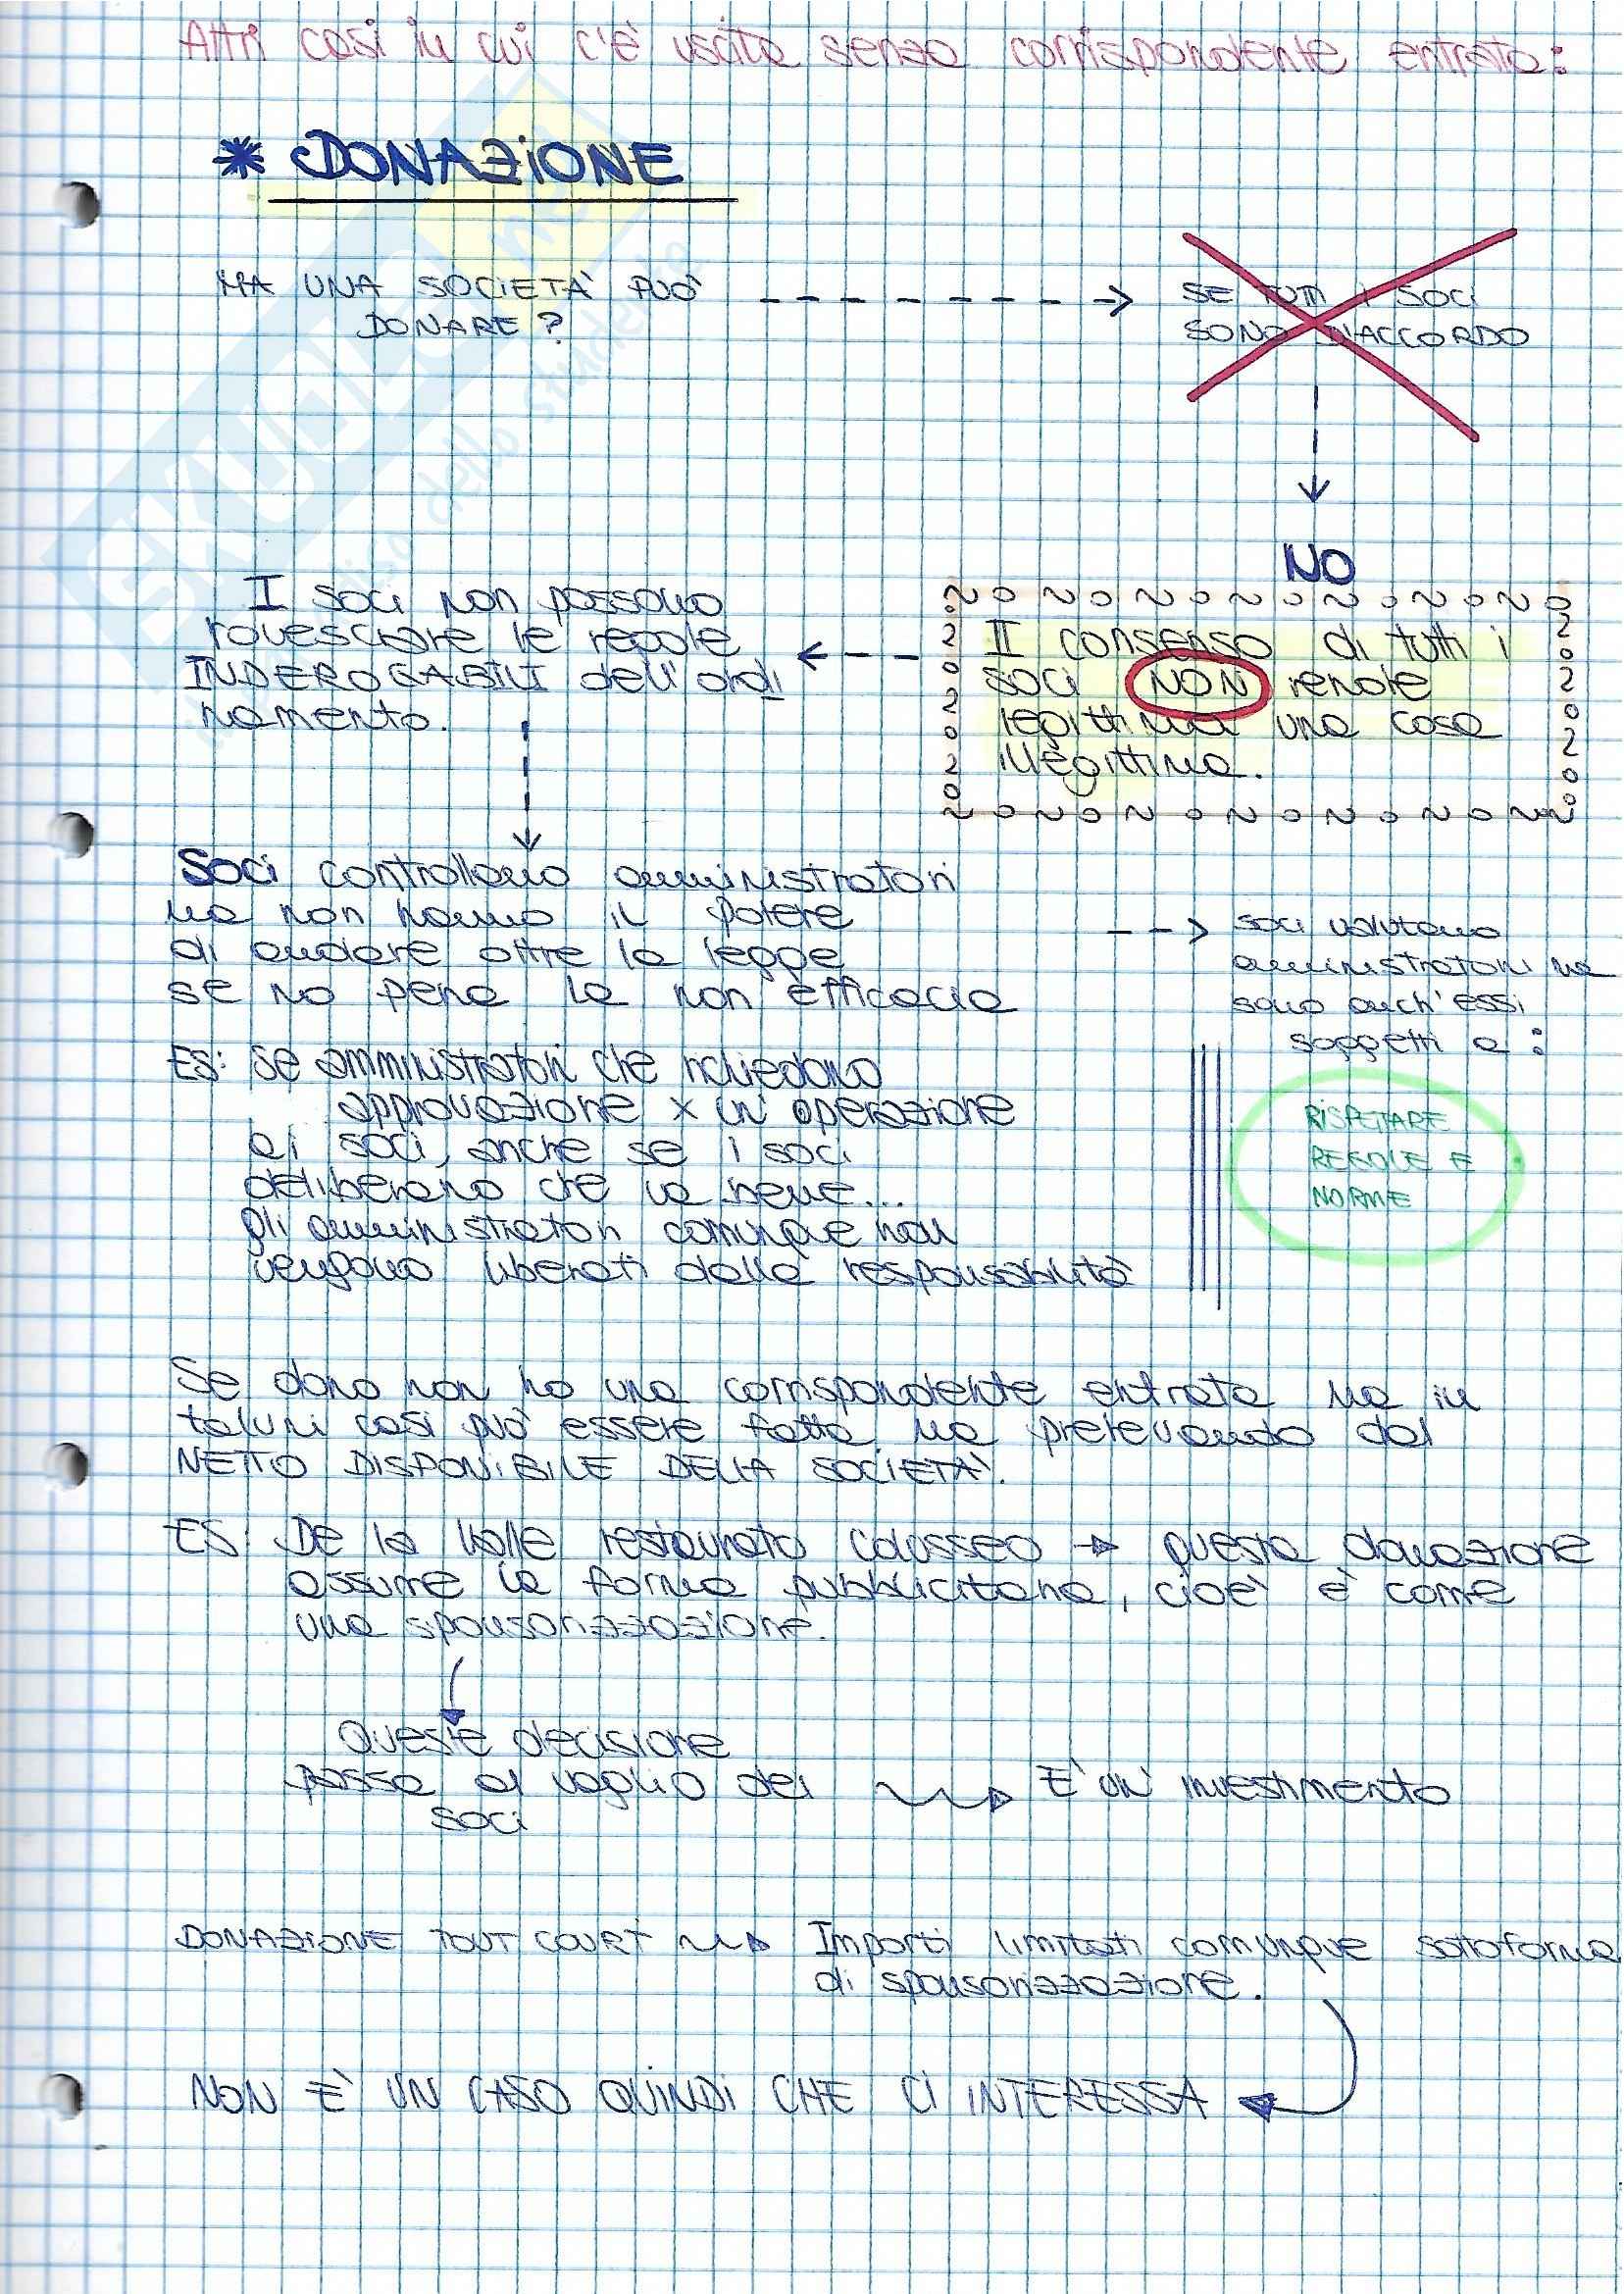 Altri casi in cui c'è uscita senza corrispondente entrata:
* DONAZIONE
MA UNA SOCIETA' PUO'
DONARE?
SE TUTTI I SOCI
SONO D'ACCORDO
NO
Il consenso di tutti i
soci NON rende
legittima una cosa
illegittima.
I soci non possono
rovesciare le regole
INDEROGABILI dell'ordi
namento.
Soci controllano amministratori
ma non hanno il potere
di andare oltre la legge
se no pena la non efficacia
soci valutano
amministratori ma
sono anch'essi
soggetti a:
RISPETTARE
REGOLE E
NORME
ES: se amministratori che richiedono
approvazione x un' operazione
ai soci, anche se i soci
deliberano che va bene...
gli amministratori comunque non
vengono liberati dalla responsabilità
Se dono non ho una corrispondente entrata ma in
taluni casi può essere fatta ma prelevando dal
NETTO DISPONIBILE DELLA SOCIETA'.
ES De la Valle restaurato Colosseo → questa donazione
assume la forma pubblicitaria, cioè è come
una sponsorizzazione.
Queste decisione
passa al vaglio dei
soci
E' un' investimento
DONAZIONE TOUT COURT
Importi limitati comunque sottoforma
di sponsorizzazione.
NON E' UN CASO QUINDI CHE CI INTERESSA
SKUOLA.net
dello studente